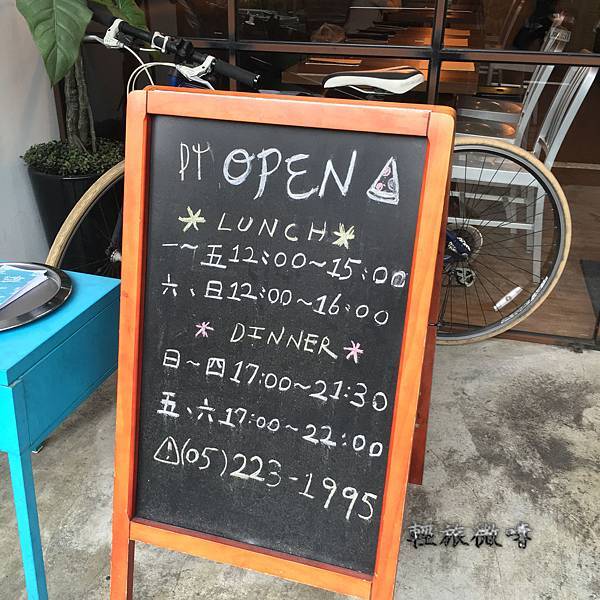 PY OPEN
LUNCH
一~五12:00~15:00
六、日12:00~16:00
DINNER
日~四17:00~21:30
五、六17:00~22:00
(05)223-1995
輕旅微嚐